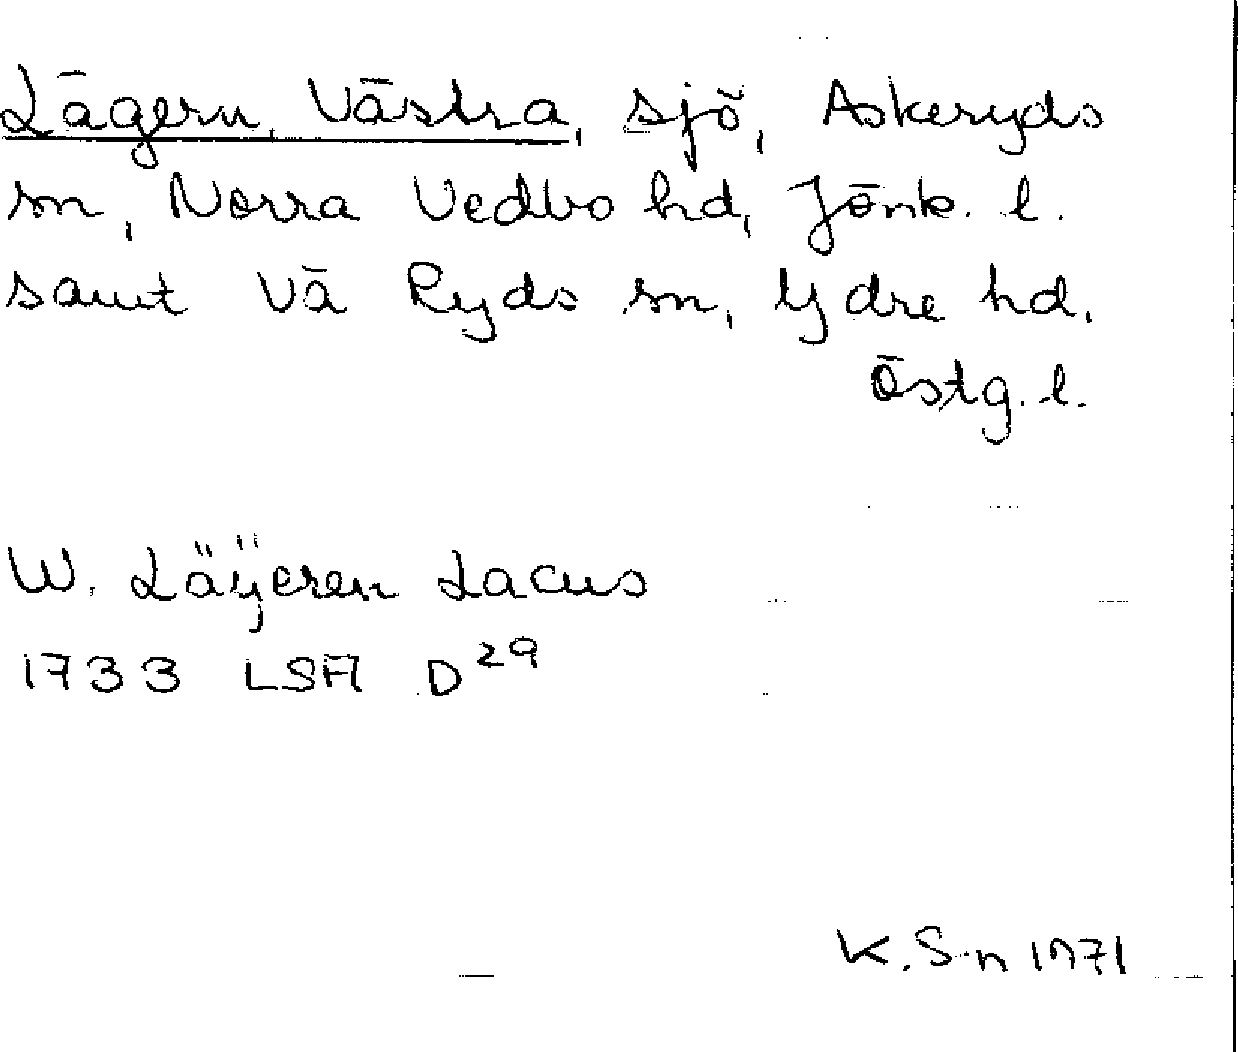 Lägern, Västra, sjö, Askeryds
sn, Norra Vedbo hd, Jönk. l.
samt Vä Ryds sn, Ydre hd.
Östg. l.
W. Läÿeren Lacus
1733 LSA D²⁹
K. S-n 1971